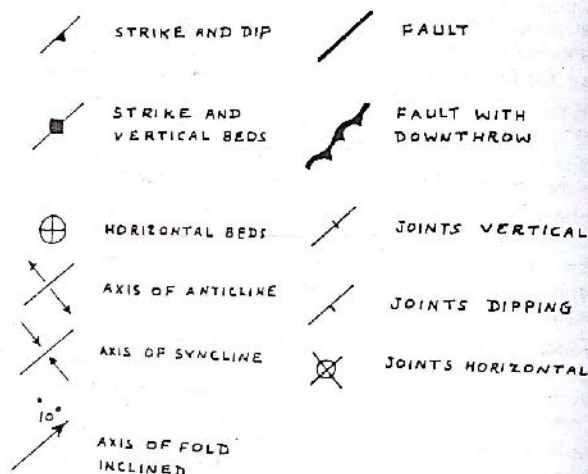 STRIKE AND DIP
STRIKE AND
VERTICAL BEDS
HORIZONTAL BEDS
AXIS OF ANTICLINE
AXIS OF SYNCLINE
10°
AXIS OF FOLD
INCLINED
FAULT
FAULT WITH
DOWNTHROW
JOINTS VERTICAL
JOINTS DIPPING
JOINTS HORIZONTAL